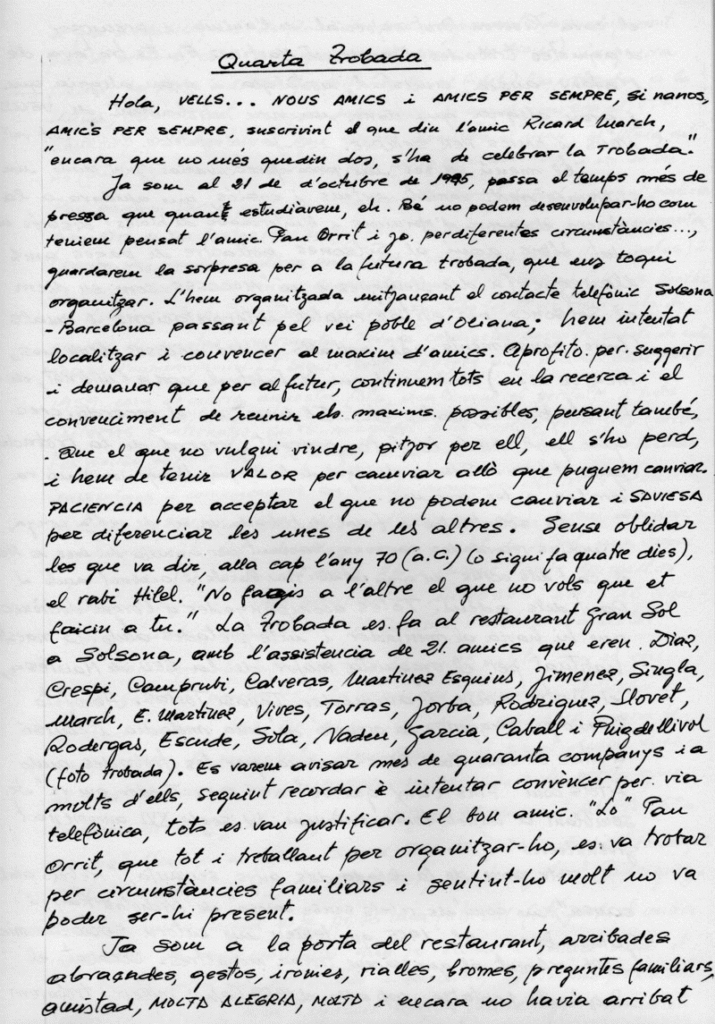 Quarta Trobada
Hola, VELLS... NOUS AMICS i AMICS PER SEMPRE, si nanos,
AMICS PER SEMPRE, suscrivint el que diu l'amic Ricard March,
"encara que no més quedin dos, s'ha de celebrar la Trobada."
Ja som al 21 de d'octubre de 1995, passa el temps més de
pressa que quant estudiavem, eh. Bé no podem desenvolupar-ho com
teniem pensat l'amic Pan Orrit i jo. per diferentes circumstàncies...,
guardarem la sorpresa per a la futura trobada, que ens toqui
organitzar. L'hem organitzada mitjansant el contacte telefònic Solsona
- Barcelona passant pel vei poble d'Oliana; hem intentat
localitzar i convencer al maxim d'amics. Aprofito per suggerir
i demanar que per al futur, continuem tots en la recerca i el
convenciment de reunir els maxims possibles, pensant també,
- Que el que no vulgui vindre, pitjor per ell, ell s'ho perd,
i hem de tenir VALOR per camviar allò que puguem canviar.
PACIENCIA per acceptar el que no podem canviar i SAVIESA
per diferenciar les unes de les altres. Sense oblidar
les que va dir, alla cap l'any 70 (a.c.) (o sigui fa quatre dies),
el rabi Hilel. "No fagis a l'altre el que no vols que et
faicin a tu." La Trobada es fa al restaurant Gran Sol
a Solsona, amb l'assistencia de 21 amics que eren. Diaz,
Crespi, Camprubi, Calveras, Martinez Esquius, Jimenez, Singla,
March, E. Martinez, Vives, Torras, Jorba, Rodriguez, Llovet,
Rodergas, Escude, Sola, Nadeu, Garcia, Caball i Puigdellivol
(foto trobada). Es varem avisar mes de quaranta companys i a
molts d'ells, seguint recordar è intentar convèncer per via
telefònica, tots es van justificar. El bon amic. "Lo" Pan
Orrit, que tot i treballant per organitzar-ho, es va trobar
per circumstàncies familiars i sentint-ho molt no va
poder ser-hi present.
Ja som a la porta del restaurant, arribades
abraçades, gestos, ironies, rialles, bromes, preguntes familiars,
amistad, MOLTA ALEGRIA, MOLTA i encara no havia arribat